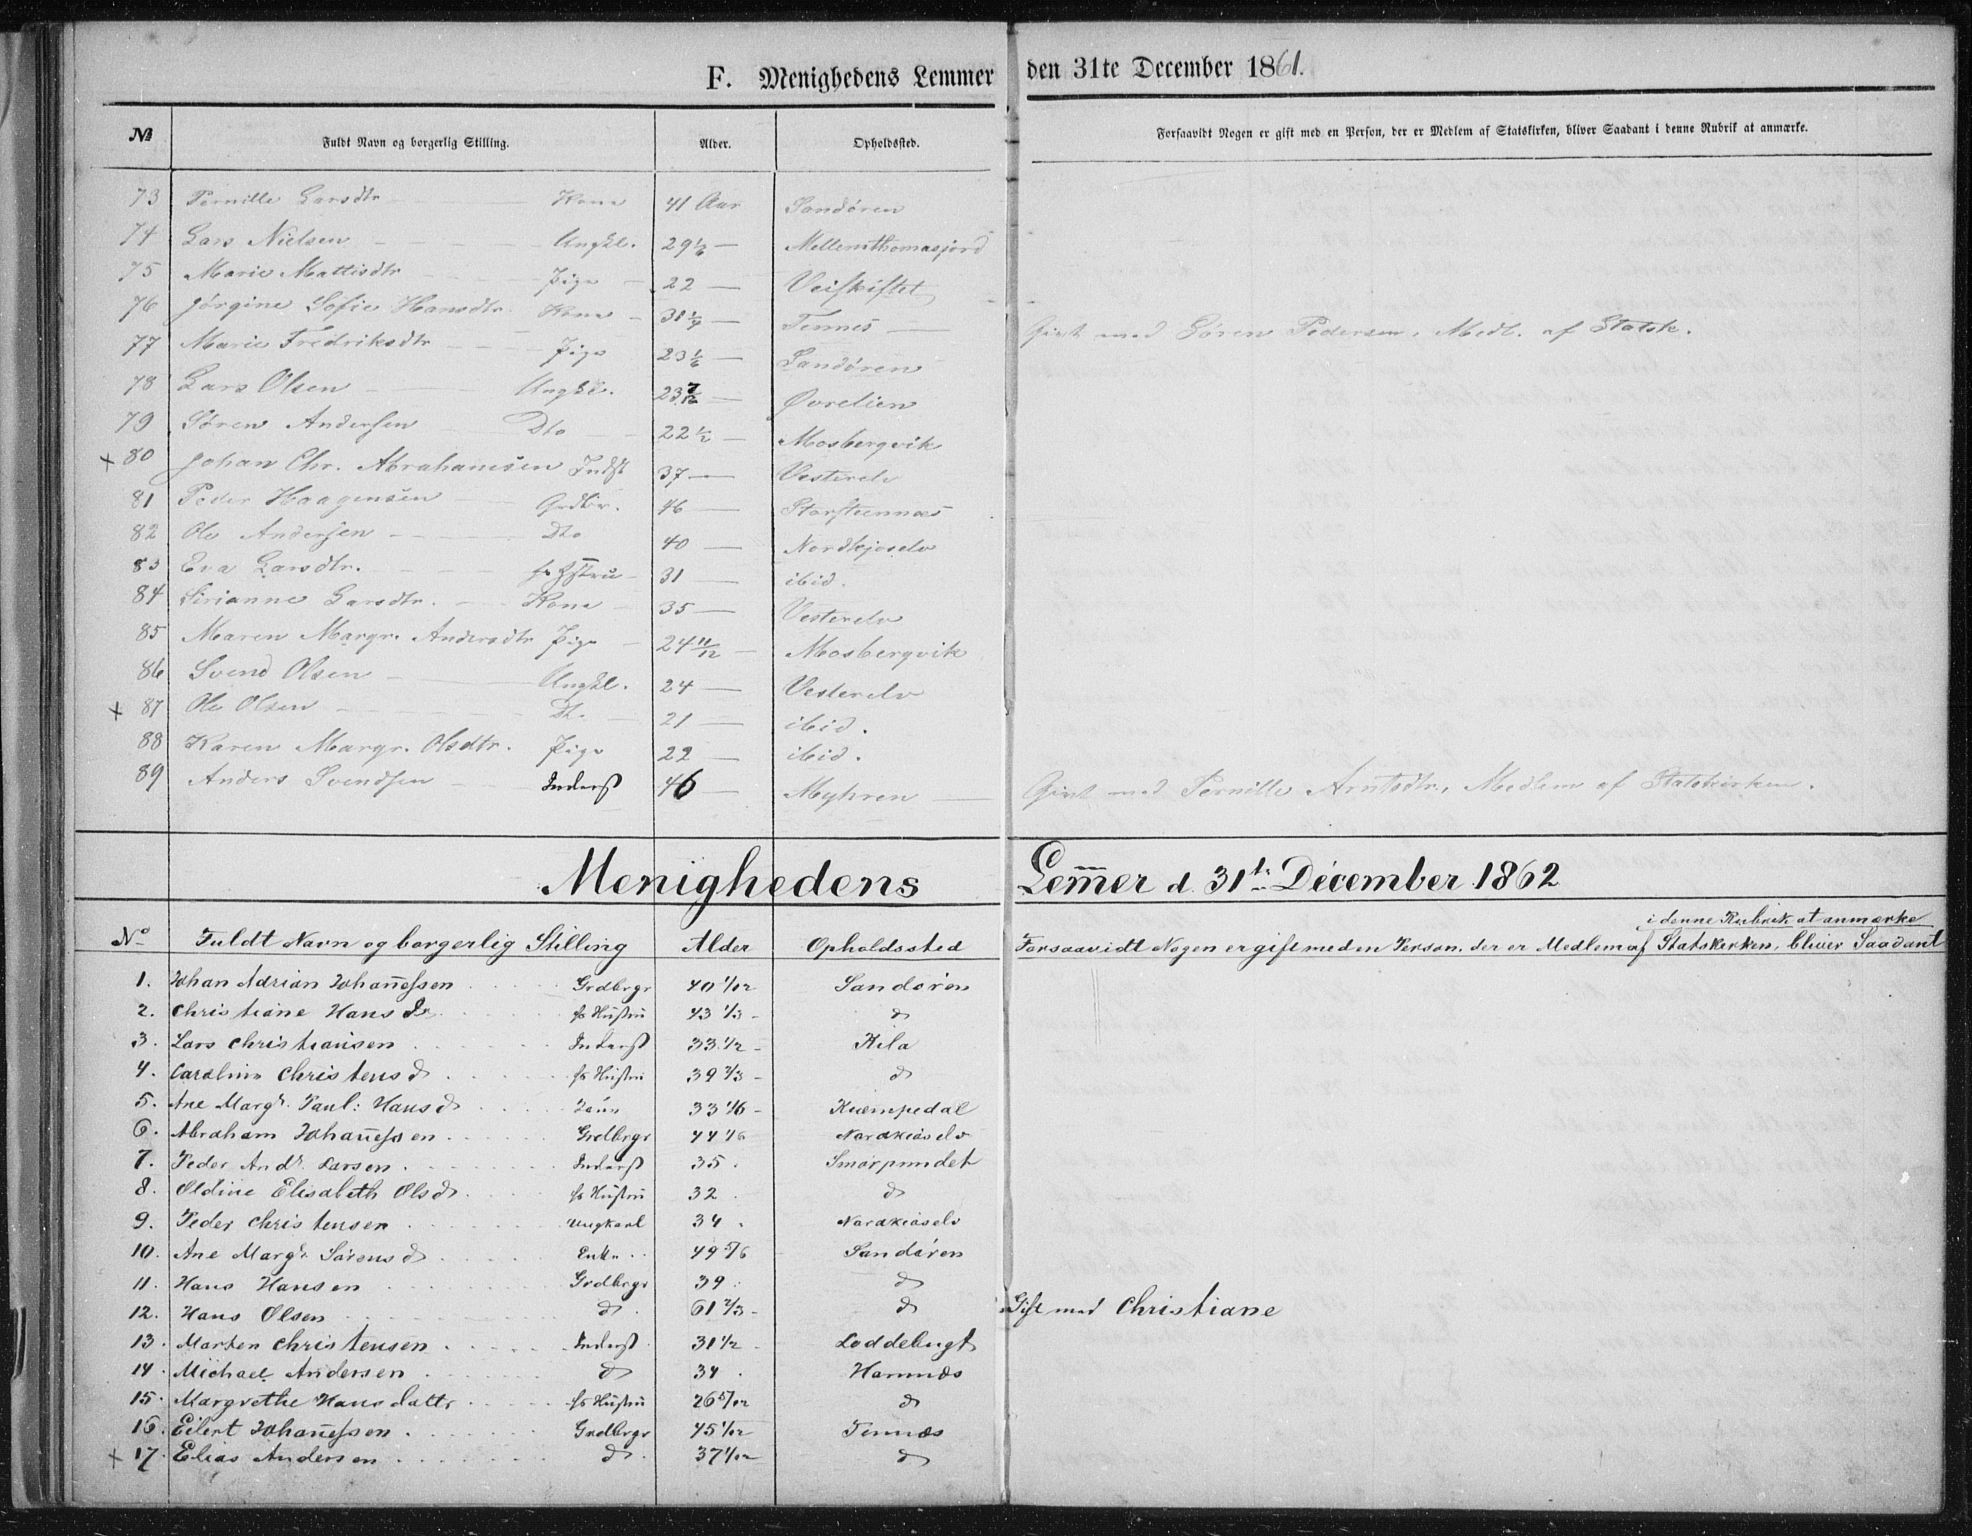 F. Menighedens Lemmer den 31te December 1861.
№ Fuldt Navn og borgerlig Stilling. Alder. Opholdssted. Forsaavidt Nogen er gift med en Person, der er Medlem af Statskirken, bliver Saadant i denne Rubrik at anmærke.
73 Pernille Larsdtr Kone 41 Aar Sandøren
74 Lars Nielsen Ungkl. 29 1/6 — Mellemthomasjord
75 Marie Mattisdtr Pige 22 — Veiskiftet
76 Jørgine Sofie Hansdtr. Kone 31 — Tennes — Givt med Søren Pedersen, Medl. af Statsk.
77 Marie Fredriksdtr Pige 23 1/6 — Sandøren
78 Lars Olsen Ungkl. 23 7/12 — Øvrelien
79 Søren Andersen Dto 22 1/2 — Mosbergvik
+ 80 Johan Chr. Abrahamsen Indst 37 — Vesterelv
81 Peder Haagensen Grdbr. 46 — Storsteennæs
82 Ole Andersen Dto 40 — Nordkjoselv
83 Eva Larsdtr. hs Hstru 31 — ibid.
84 Sirianne Larsdtr. Kone 35 — Vesterelv
85 Maren Margr. Andersdtr Pige 24 11/12 — Mosbergvik
86 Svend Olsen Ungkl. 24 — Vesterelv
+ 87 Ole Olsen Dt. 21 — ibid.
88 Karen Margr. Olsdtr. Pige 22 — ibid.
89 Anders Svendsen Inderst 46 — Myhren — Givt med Pernille Arntsdtr., Medlem af Statskirken.
Menighedens Lem̄er d. 31te December 1862
i denne Rubrik at anmærke
No Fuldt Navn og borgerlig Stilling Alder Opholdssted Forsaavidt Nogen er gift med en Person, der er Medlem af Statskirken, bliver Saadant
1. Johan Adrian Johan̄essen Grdbrgr 40 1/12 Sandøren
2. Christiane Hansdr. hs Hustru 43 1/3 — do
3. Lars Christiansen Inderst 33 1/2 — Kila
4. Caroline Christensd hs Hustru 39 2/3 — do
5. Ane Margr. Paul: Hansd Kone 33 1/6 — Kuempedal
6. Abraham Johan̄essen Grdbrgr 44 1/6 Nordkiøselv
7. Peder Andr. Larsen Inderst 35. Smørpundet
8. Oldine Elisabeth Olsd hs Hustru 32. do
9. Peder Christensen Ungkarl 34. Nordkiøselv
10. Ane Margr. Sørensd Enke 49 5/6 Sandøren
11. Hans Hansen Grdbrgr 39. do
12. Hans Olsen do 61 2/3 — do Gift med Christiane
13. Morten Christensen Inderst 31 1/2 Loddebugt
14. Michael Andersen do 34. Hamnæs
15. Margrethe Hansdattr hs Hustru 26 5/12 do
16. Eilert Johan̄essen Grdbrgr 45 1/12 Tennæs
+ 17. Elias Andersen do 37 1/12 do